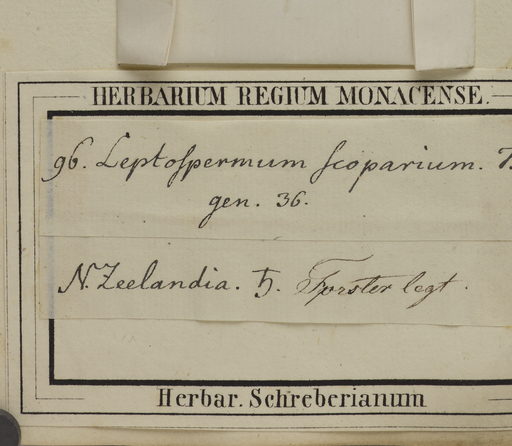 HERBARIUM REGIUM MONACENSE.
96. Leptospermum scoparium.
gen. 36.
N. Zeelandia. ♄. Forster legt.
Herbar. Schreberianum